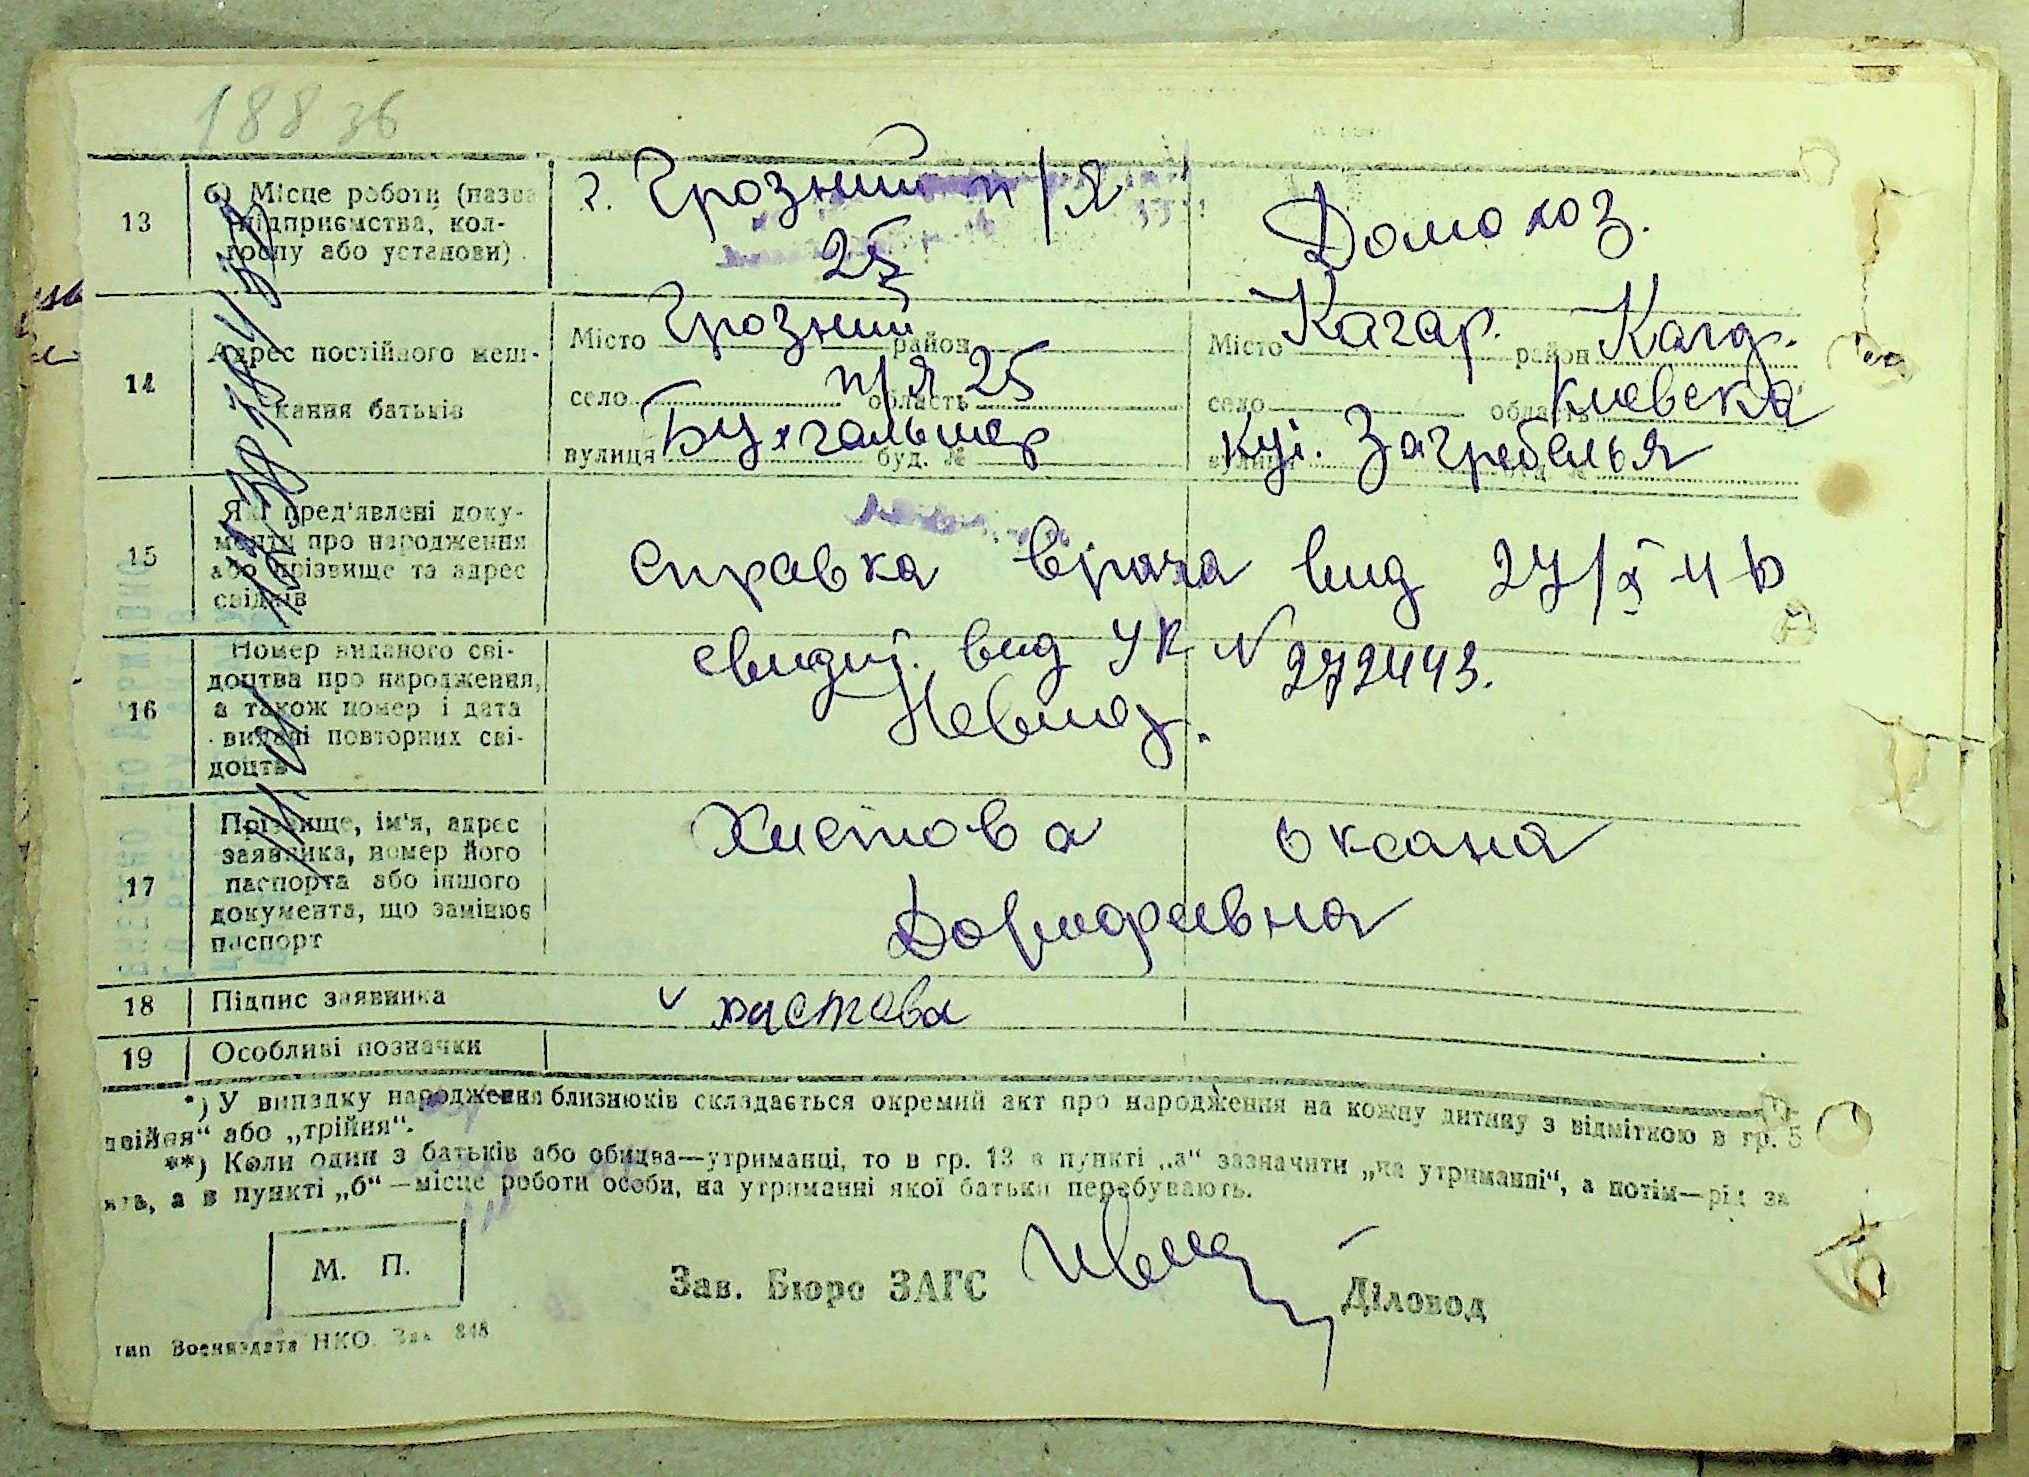 188 36
13
б) Місце роботи (назва
підприємства, кол-
госпу або установи)
г. Грозний п/я
25
Домохоз.
14
Адрес постійного меш-
кання батьків
Місто Грозний район
село п/я 25 область
вулиця Бухгальтер буд. №
Місто Кагар. район Кагар.
село область Киевска
вулиця Загребелья
15
Які пред'явлені доку-
менти про народження
або прізвище та адрес
свідків
справка врача вид 27/X-46
16
Номер виданого сві-
доцтва про народження,
а також номер і дата
видачі повторних сві-
доцтв
вид УК № 272443.
17
Прізвище, ім'я, адрес
заявника, номер його
паспорта або іншого
документа, що замінює
паспорт
Хистова Оксана
18
Підпис заявника
хистова
19
Особливі позначки
*) У випадку народження близнюків складається окремий акт про народження на кожну дитину з відміткою в гр. 5
двійня“ або „трійня“.
**) Коли один з батьків або обидва—утриманці, то в гр. 13 в пункті „а“ зазначити „на утриманні“, а потім—рід за
а в пункті „б“—місце роботи особи, на утриманні якої батьки перебувають.
М. П.
Зав. Бюро ЗАГС
Діловод
тип Воениздата НКО. Зак. 848